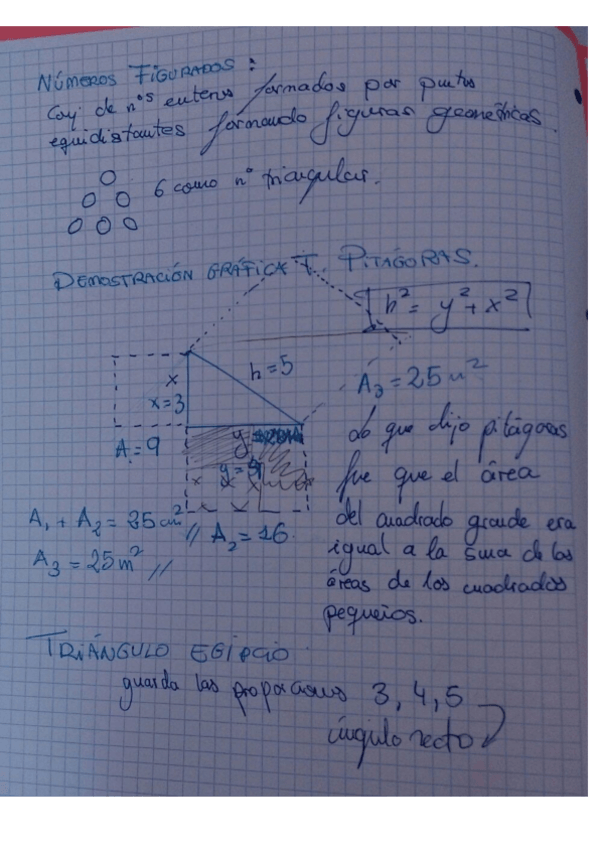 NÚMEROS FIGURADOS:
Conj de nºs enteros formados por puntos
equidistantes formando figuras geométricas.
6 como nº triangular.
DEMOSTRACIÓN GRÁFICA T. PITÁGORAS.
h² = y² + x²
x
x=3
h=5
A₃=25 m²
A₁=9
y
y=4
Lo que dijo pitágoras
fue que el área
del cuadrado grande era
igual a la suma de las
áreas de los cuadrados
pequeños.
A₁ + A₂ = 25 cm² //
A₂=16.
A₃ = 25 m² //
TRIÁNGULO EGIPCIO.
guarda las proporciones 3, 4, 5
ángulo recto